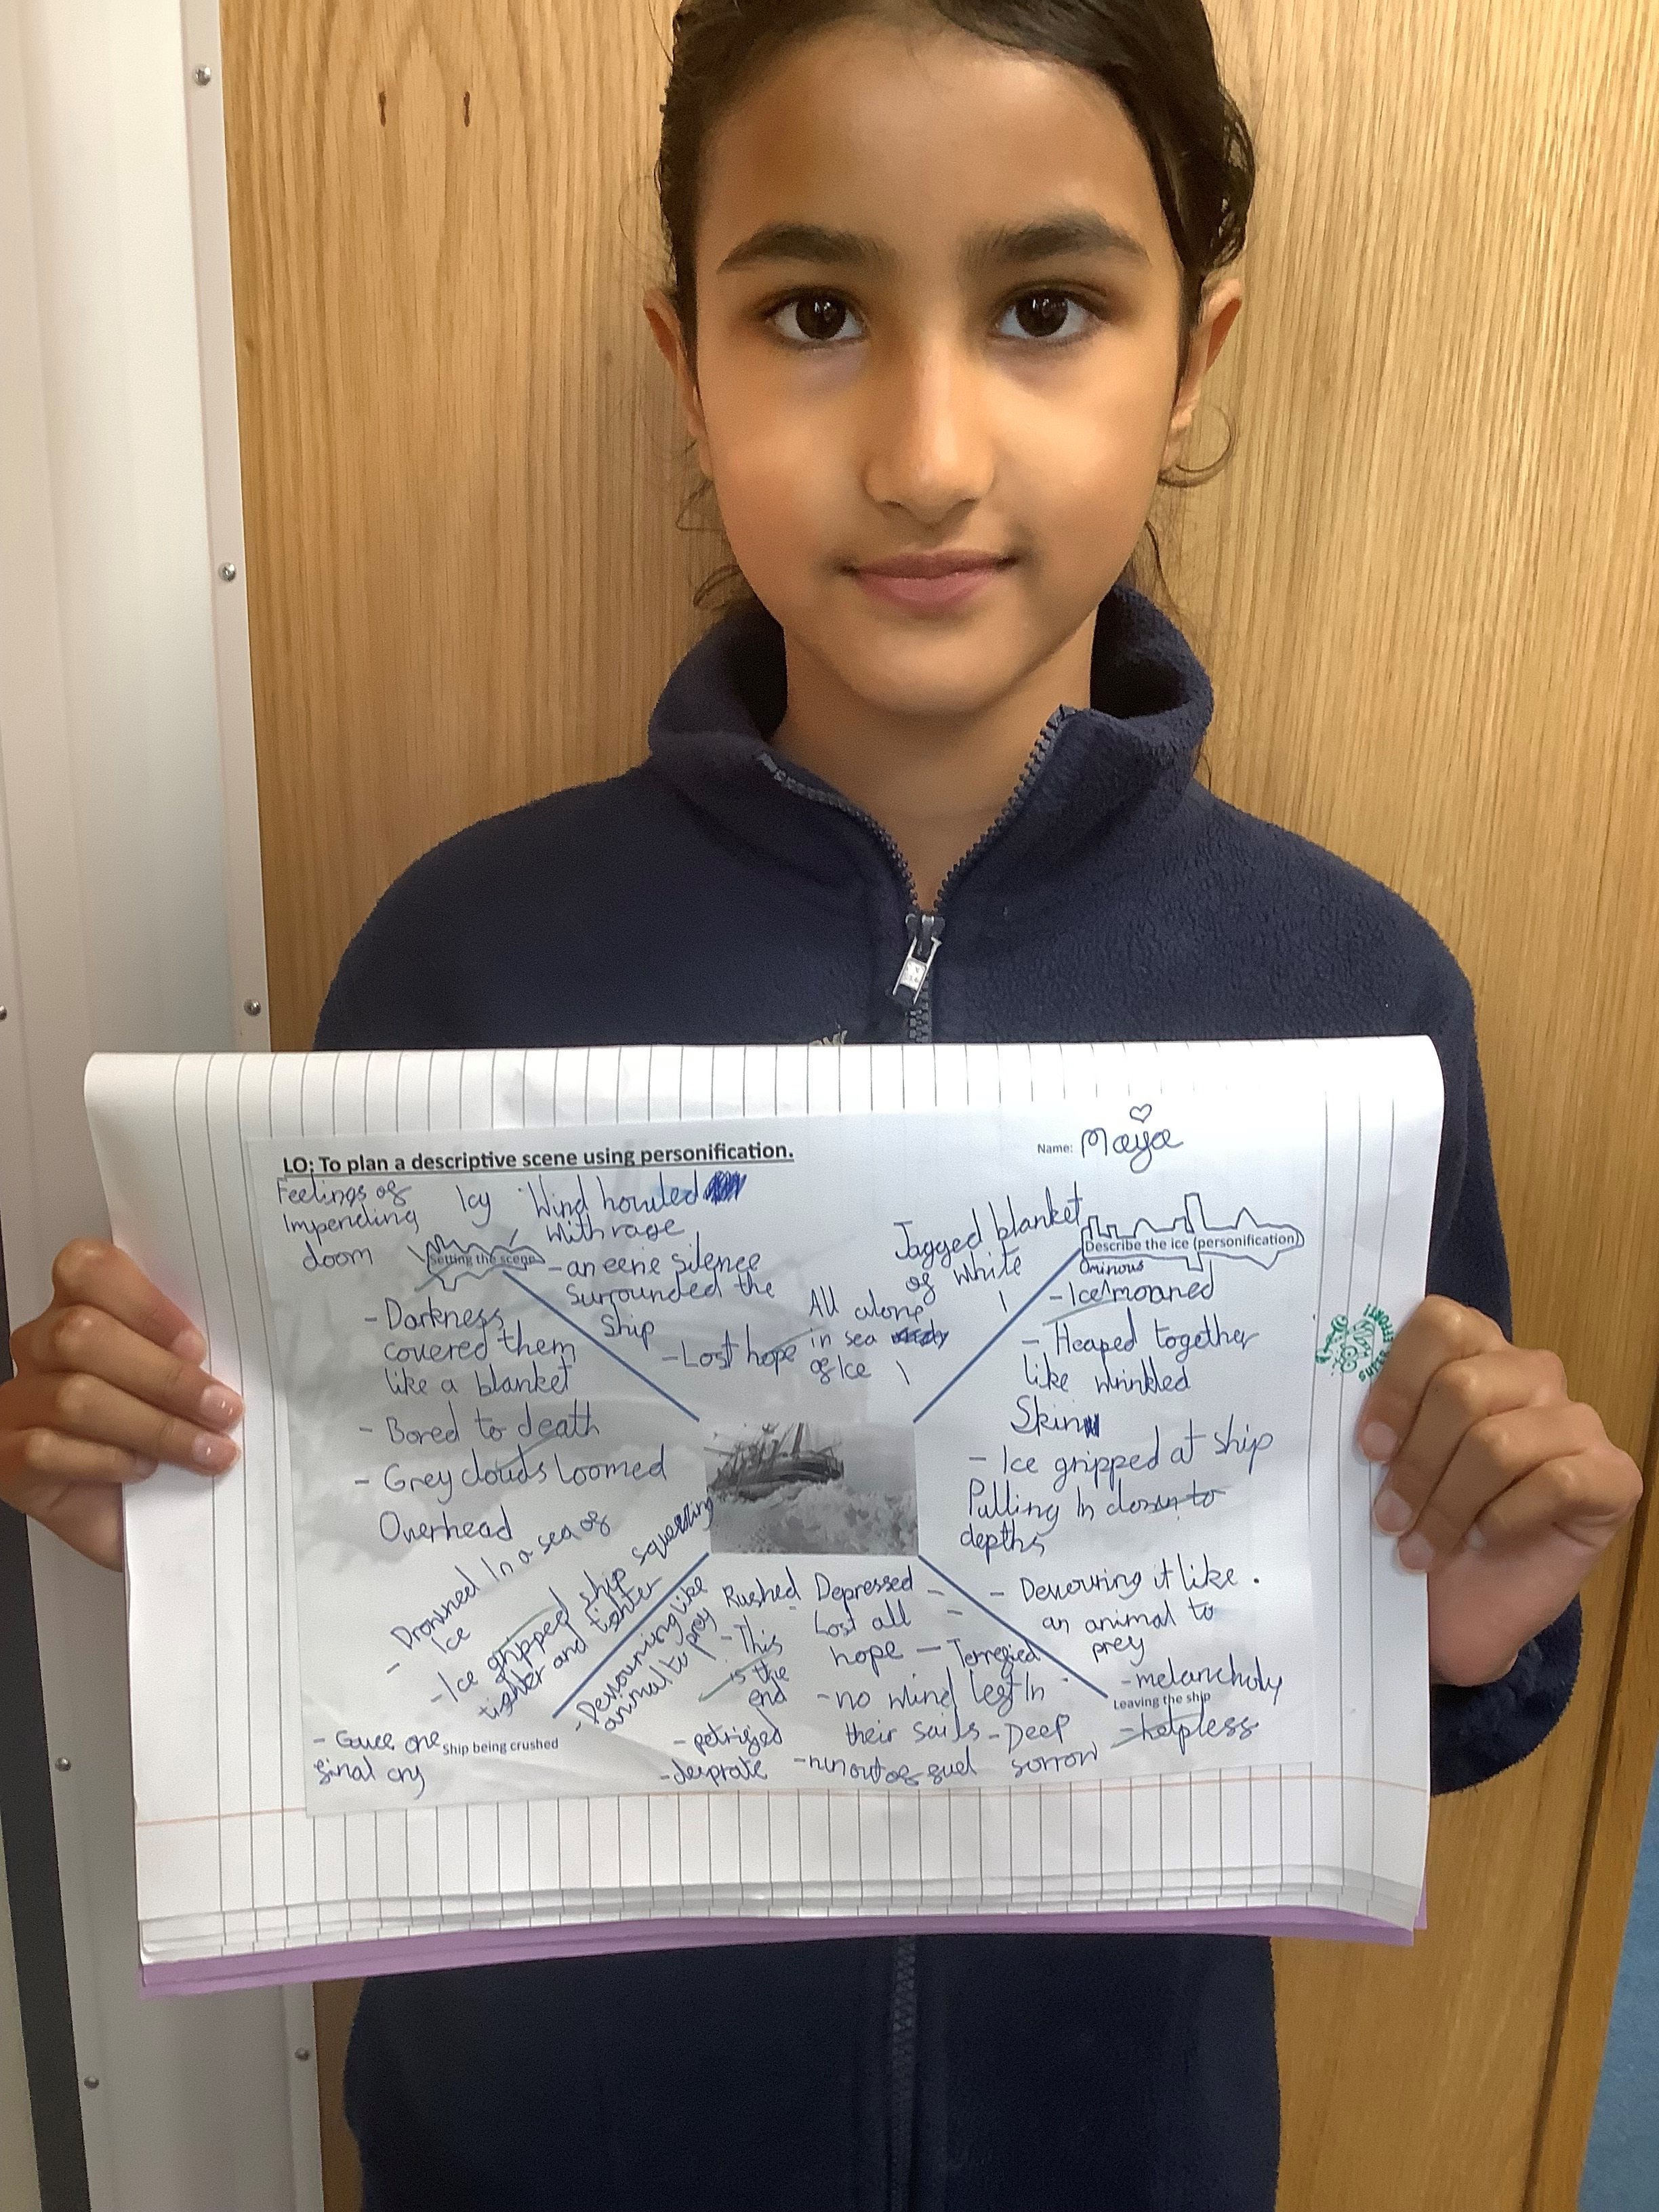 LO: To plan a descriptive scene using personification.
Name: Maya
Feelings of
Impending
doom
Icy Wind howled
with rage
Setting the scene
- an eerie silence
surrounded the
ship
- Darkness
covered them
like a blanket
- Bored to death
- Grey clouds loomed
Overhead
- Lost hope
All alone
in sea
of Ice
Jagged blanket
of white
Describe the ice (personification)
Ominous
- Ice moaned
- Heaped together
like wrinkled
Skin
- Ice gripped at ship
Pulling In closer to
depths
- Devouring it like
an animal to
prey
- Drowned In a sea of
Ice
- Ice gripped ship squeezing
tighter and tighter
- Devouring like
animal to prey
- Gave one
final cry
Ship being crushed
Rushed
- This
is the
end
- petrified
- desprate
Depressed
Lost all
hope
- Terrefied
- no wind left In
their sails
- run out of fuel
- Deep
sorrow
- melancholy
Leaving the ship
- helpless
EFFORT!